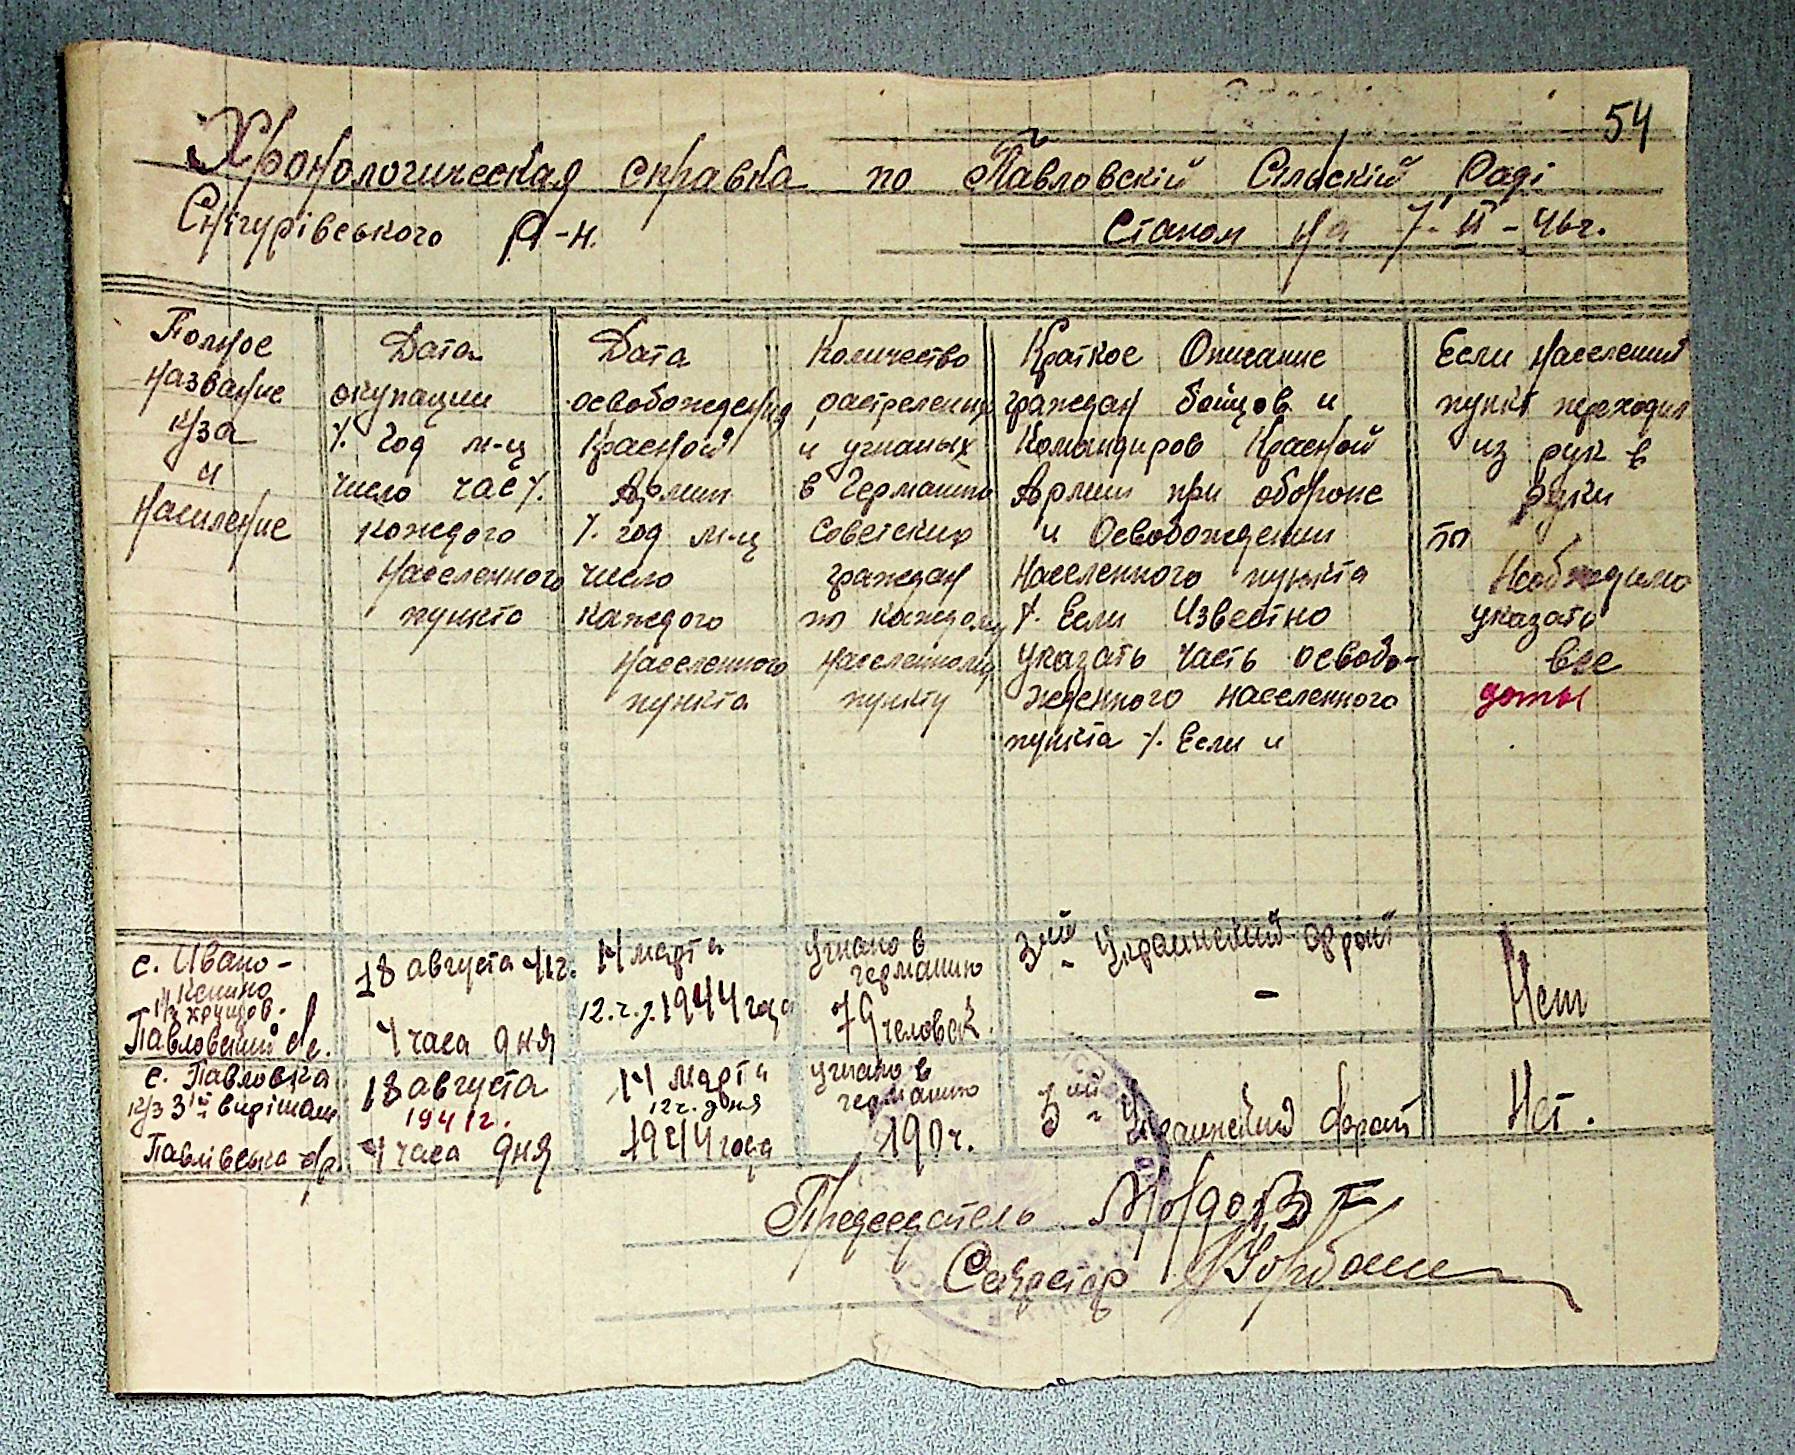 54
Хронологическая справка по Павловскій Сільскій Раді
Снігурівського Р-н. Станом на 7-II-46г.
Полное
название
к/за
и
Насиление
Дата
окупации
/. год м-ц
число час /.
каждого
Населенного
пункта
Дата
освобождения
Красной
Армии
/. год м-ц
число
каждого
населенного
пункта
Количество
растреленых
и угнаных
в Германию
Советских
граждан
по каждому
населенному
пункту
Краткое Описание
граждан бойцов и
Командиров Красной
Армии при обороне
и Освобождении
Населенного пункта
/. Если Известно
указать часть освобо-
жденного населенного
пункта /. Если и
Если населений
пункт переходил
из рук в
руки
то
Необходимо
указать
все
даты
с. Ивано-
Кепино
к/з хрущов.
Павловский с/с.
18 августа 41г.
4 часа дня
14 марта
12.ч.д. 1944 года
Угнано в
германию
79 человек.
3ий Украинский фронт
-
Нет
с. Павловка
к/з 3ій вирішал.
Павлівська с/р
18 августа
1941г.
4 часа дня
14 марта
12ч. дня
1944 года
Угнано в
германию
190ч.
3ий Украинский фронт
Нет.
Председатель
Секретар